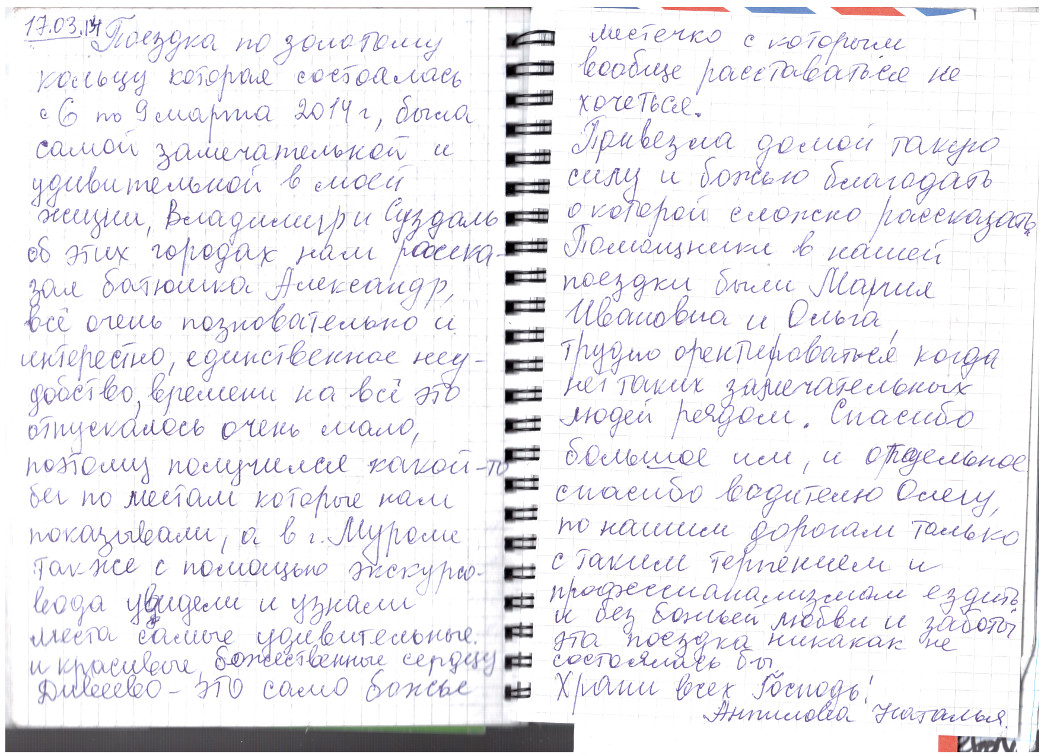 17.03.14
Поездка по золотому
кольцу которая состоалась
с 6 по 9 марта 2014 г, была
самой замечательной и
удивительной в моей
жизни, Владимир и Суздаль
об этих городах нам расска-
зал батюшка Александр,
всё очень позновательно и
интерестно, единственное неу-
добство, времени на всё это
отпускалось очень мало,
поэтому получился какой-то
бег по местам которые нам
показывали, а в г. Муроме
также с помощью экскурсо-
вода увидели и узнали
места самые удивительные
и красивые, божественные сердцу
Дивеево - это само божье
местечко с которым
вообще расставаться не
хочеться.
Привезла домой такую
силу и божью благодать
о которой сложно рассказать.
Помощники в нашей
поездки были Мария
Ивановна и Ольга,
трудно орентироваться когда
нет таких замечательных
людей рядом. Спасибо
большое им, и отдельное
спасибо водителю Олегу,
по нашим дорогам только
с таким терпением и
профессианализмом ездить,
и без Божьей любви и заботы
эта поездка никакак не
состоялась бы,
Храни всех Господь!
Антилова Наталья.